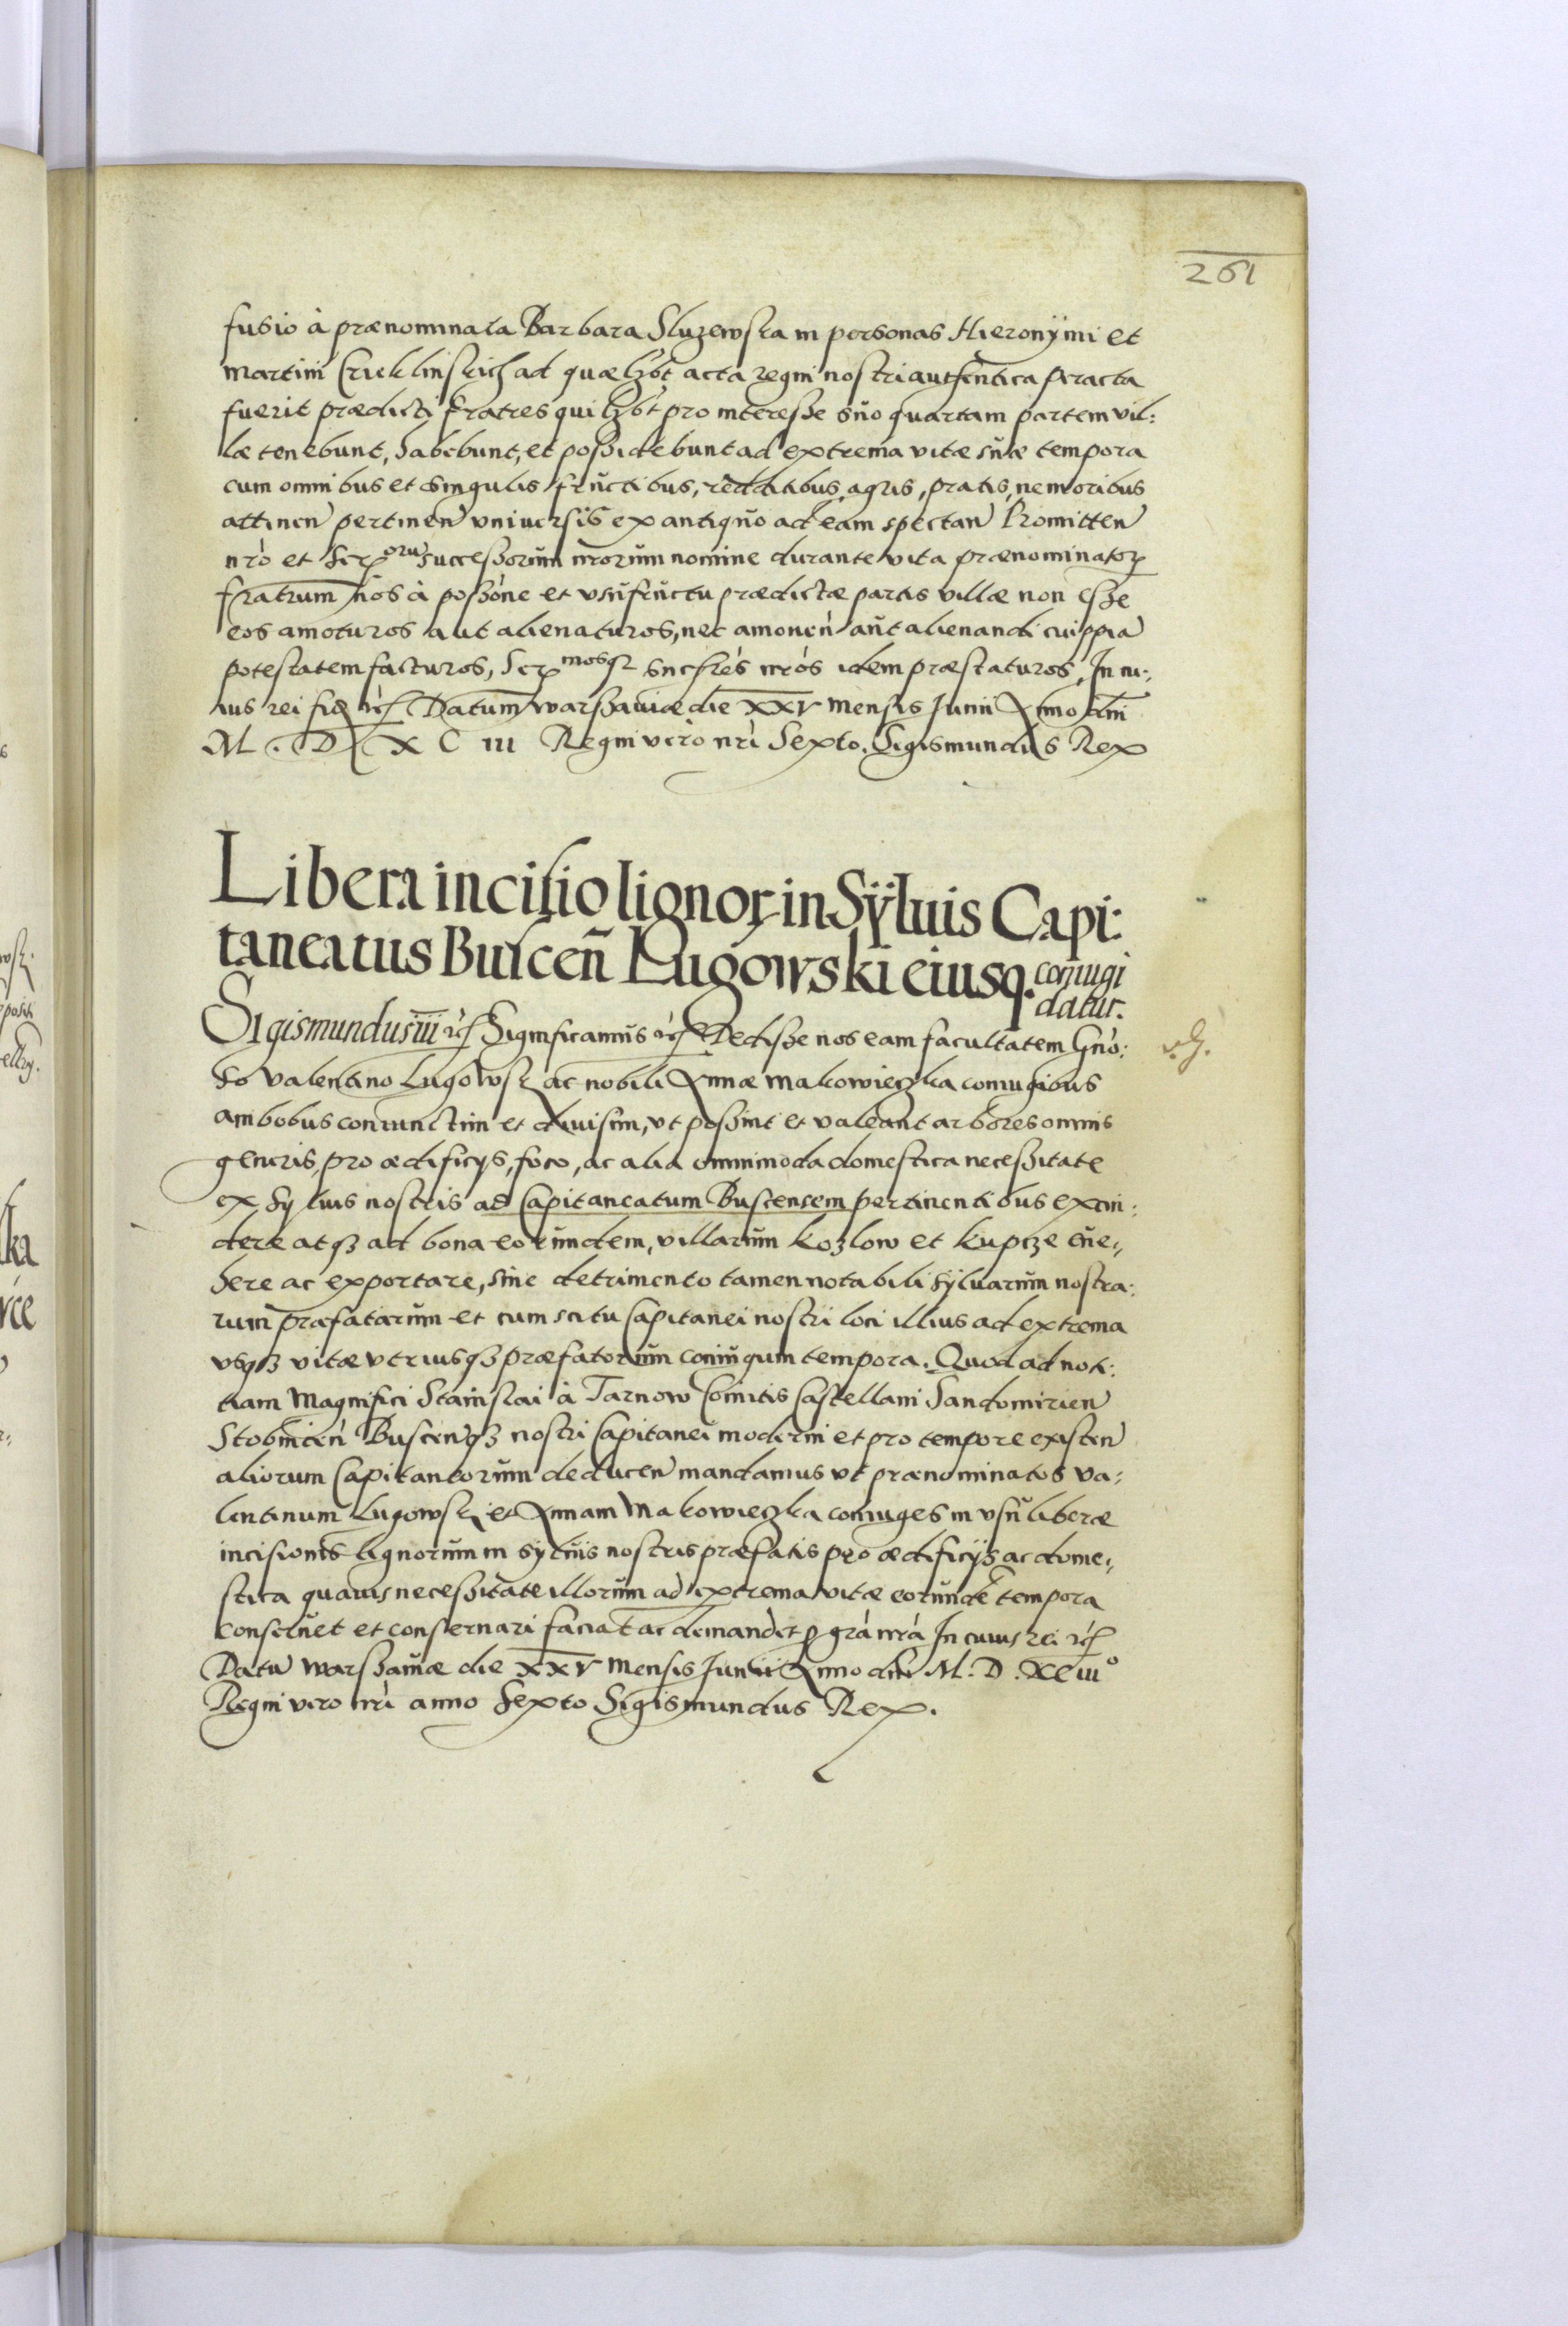 261
fusio à prænominata Barbara Sluzewska in personas Hieronÿmi et
Martini Crieklinskich ad quæ hbt acta regni nostri authentica peracta
fuerit prædicti fratres qui hbt pro interesse suo quartam partem vil:
læ tenebunt, habebunt, et possidebunt ad extrema vitæ suæ tempora
cum omnibus et singulis fructibus, redditibus, agris, pratis, nemoribus
attinen pertinen vniuersis ex antiquo ad eam spectan Promitten
nro et Ser orum successorum nrorum nomine durante vita prænominator
fratrum nos à possone et vsufructu prædictæ partis villæ non esse
eos amoturos aut alienaturos, nec amouen aut alienandi cuippia
potestatem facturos, Ser mosq succres nros idem præstaturos, In cu:
ius rei fid etc Datum Warssauiæ die XXV mensis Junii Anno dni
M. D. X C III Regni vero nri Sexto. Sigismundus Rex
Libera incisio lignor in Sÿluis Capi:
taneatus Buscen Lugowski eiusq. coniugi
datur.
Sigismundus III etc Significamus etc Dedisse nos eam facultatem Gno:
so Valentino Lugowsk ac nobili Annæ Makowieczka coniugibus
ambobus coniunctim et diuisim, vt possint et valeant arbores omnis
generis, pro ædificijs, foco, ac alia omnimoda domestica necessitate
ex syluis nostris ad Capitaneatum Buscensem pertinentibus excin:
dere atq3 ad bona eorundem, villarum Kozlow et Kupcze eue:
here ac exportare, sine detrimento tamen notabili sÿluarum nostra:
rum præfatarum et cum scitu Capitanei nostri loci illius ad extrema
vsq3 vitæ vtriusq3 præfatorum coniugum tempora. Quod ad noti:
tiam Magnifici Stanislai à Tarnow Comitis Castellani Sandomirien
Stobnicen Buscenq3 nostri Capitanei moderni et pro tempore existen
aliorum Capitaneorum deducen mandamus vt prænominatos Va:
lentinum Lugowsk et Annam Makowieczka coniuges in vsu liberæ
incisionis lignorum in syluis nostris præfatis pro ædificijs ac dome:
stica quauis necessitate illorum ad extrema vitæ eorunde tempora
conseruet et conseruari faciat ac demandet p gra nra In cuius rei etc
Datu Warssauiæ die XXV mensis Junii Anno dni M. D. XCIII°
Regni vero nri anno Sexto Sigismundus Rex.